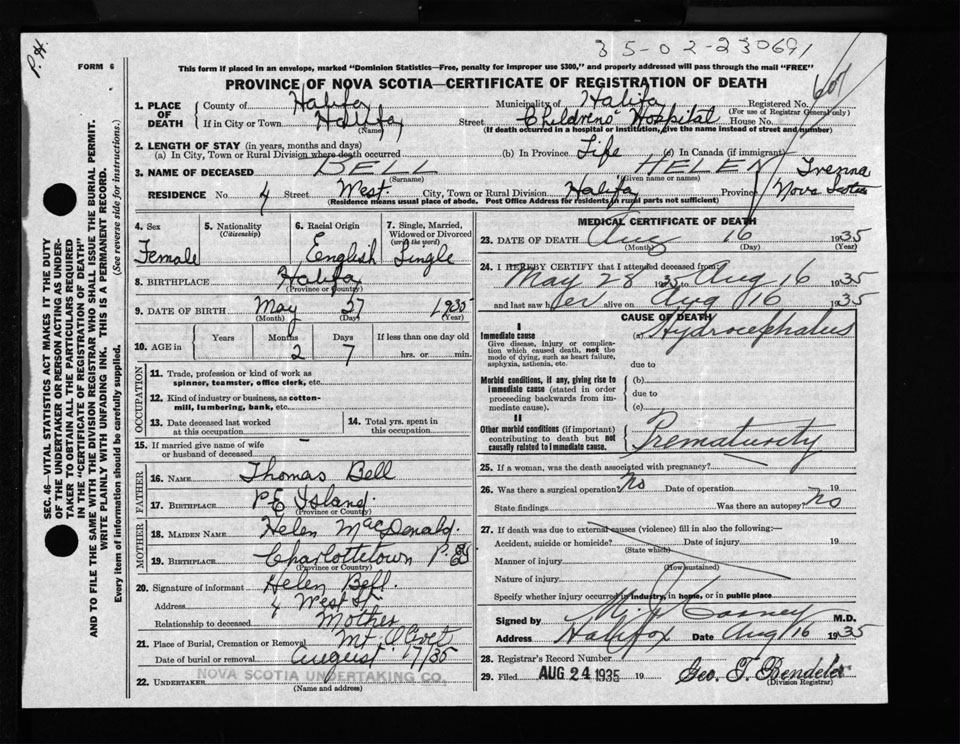 35-02-230691
P.H.
FORM 6
This form if placed in an envelope, marked "Dominion Statistics—Free, penalty for improper use $300," and properly addressed will pass through the mail "FREE"
PROVINCE OF NOVA SCOTIA—CERTIFICATE OF REGISTRATION OF DEATH
1. PLACE OF DEATH
County of Halifax Municipality of Halifax Registered No.
(For use of Registrar General only)
If in City or Town Halifax Street Childrens' Hospital House No.
(Name) (If death occurred in a hospital or institution, give the name instead of street and number)
2. LENGTH OF STAY (in years, months and days)
(a) In City, Town or Rural Division where death occurred (b) In Province Life (c) In Canada (if immigrant)
3. NAME OF DECEASED BELL HELEN
(Surname) (Given name or names)
RESIDENCE No. 4 Street West. City, Town or Rural Division Halifax Province Nova Scotia
(Residence means usual place of abode. Post Office Address for residents in rural parts not sufficient)
4. Sex Female
5. Nationality (Citizenship)
6. Racial Origin English
7. Single, Married, Widowed or Divorced (write the word) Single
8. BIRTHPLACE Halifax
(Province or Country)
9. DATE OF BIRTH May 27 1935
(Month) (Day) (Year)
10. AGE in Years Months 2 Days 7 If less than one day old hrs. or min.
OCCUPATION
11. Trade, profession or kind of work as spinner, teamster, office clerk, etc.
12. Kind of industry or business, as cotton-mill, lumbering, bank, etc.
13. Date deceased last worked at this occupation
14. Total yrs. spent in this occupation
15. If married give name of wife or husband of deceased —
FATHER
16. NAME Thomas Bell
17. BIRTHPLACE P.E Island.
(Province or Country)
MOTHER
18. MAIDEN NAME Helen MacDonald.
19. BIRTHPLACE Charlottetown P.E.I
(Province or Country)
20. Signature of informant Helen Bell.
Address 4 West St.
Relationship to deceased Mother
21. Place of Burial, Cremation or Removal Mt. Olivet
Date of burial or removal August 17/35
22. UNDERTAKER NOVA SCOTIA UNDERTAKING CO.
(Name and address)
MEDICAL CERTIFICATE OF DEATH
23. DATE OF DEATH Aug 16 1935
(Month) (Day) (Year)
24. I HEREBY CERTIFY that I attended deceased from
May 28 1935 Aug 16 1935
and last saw her alive on Aug 16 1935
CAUSE OF DEATH
I
Immediate cause
Give disease, injury or complication which caused death, not the mode of dying, such as heart failure, asphyxia, asthenia, etc.
(a) Hydrocephalus
due to
Morbid conditions, if any, giving rise to immediate cause (stated in order proceeding backwards from immediate cause).
(b)
due to
(c)
II
Other morbid conditions (if important) contributing to death but not causally related to immediate cause.
Prematurity
25. If a woman, was the death associated with pregnancy? —
26. Was there a surgical operation? No Date of operation 19
State findings Was there an autopsy? No
27. If death was due to external causes (violence) fill in also the following:—
Accident, suicide or homicide? Date of injury 19
(State which)
Manner of injury
(How sustained)
Nature of injury
Specify whether injury occurred in industry, in home, or in public place
Signed by M.D.
Address Halifax Date Aug 16 1935
28. Registrar's Record Number
29. Filed AUG 24 1935 19 Geo. T. Bendeler
(Division Registrar)
SEC. 46—VITAL STATISTICS ACT MAKES IT THE DUTY
OF THE UNDERTAKER OR PERSON ACTING AS UNDER-
TAKER TO OBTAIN ALL THE PARTICULARS REQUIRED
IN THE "CERTIFICATE OF REGISTRATION OF DEATH"
AND TO FILE THE SAME WITH THE DIVISION REGISTRAR WHO SHALL ISSUE THE BURIAL PERMIT.
WRITE PLAINLY WITH UNFADING INK. THIS IS A PERMANENT RECORD.
Every item of information should be carefully supplied. (See reverse side for instructions.)